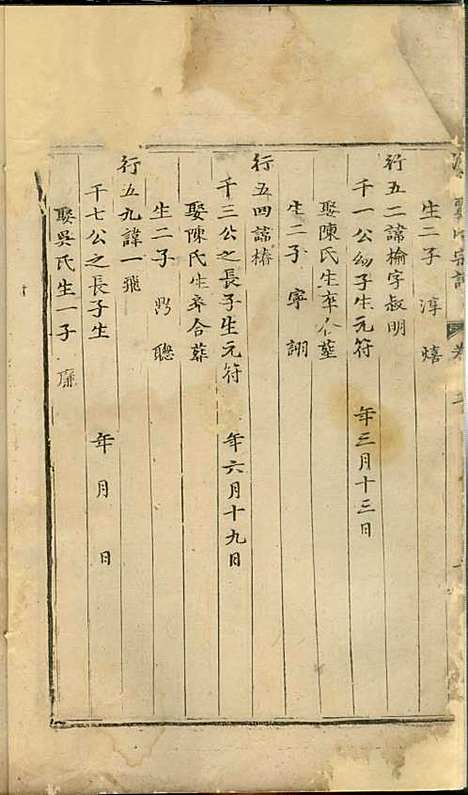 宗譜 卷
生二子 淳 熺
行五二諱楡字叔明
千一公幼子生元符 年三月十三日
娶陳氏生卒合塟
生二子 寧 詡
行五四諱椿
千三公之長子生元符 年六月十九日
娶陳氏生卒合葬
生二子 聰
行五九諱一飛
千七公之長子生 年 月 日
娶吳氏生一子 廉